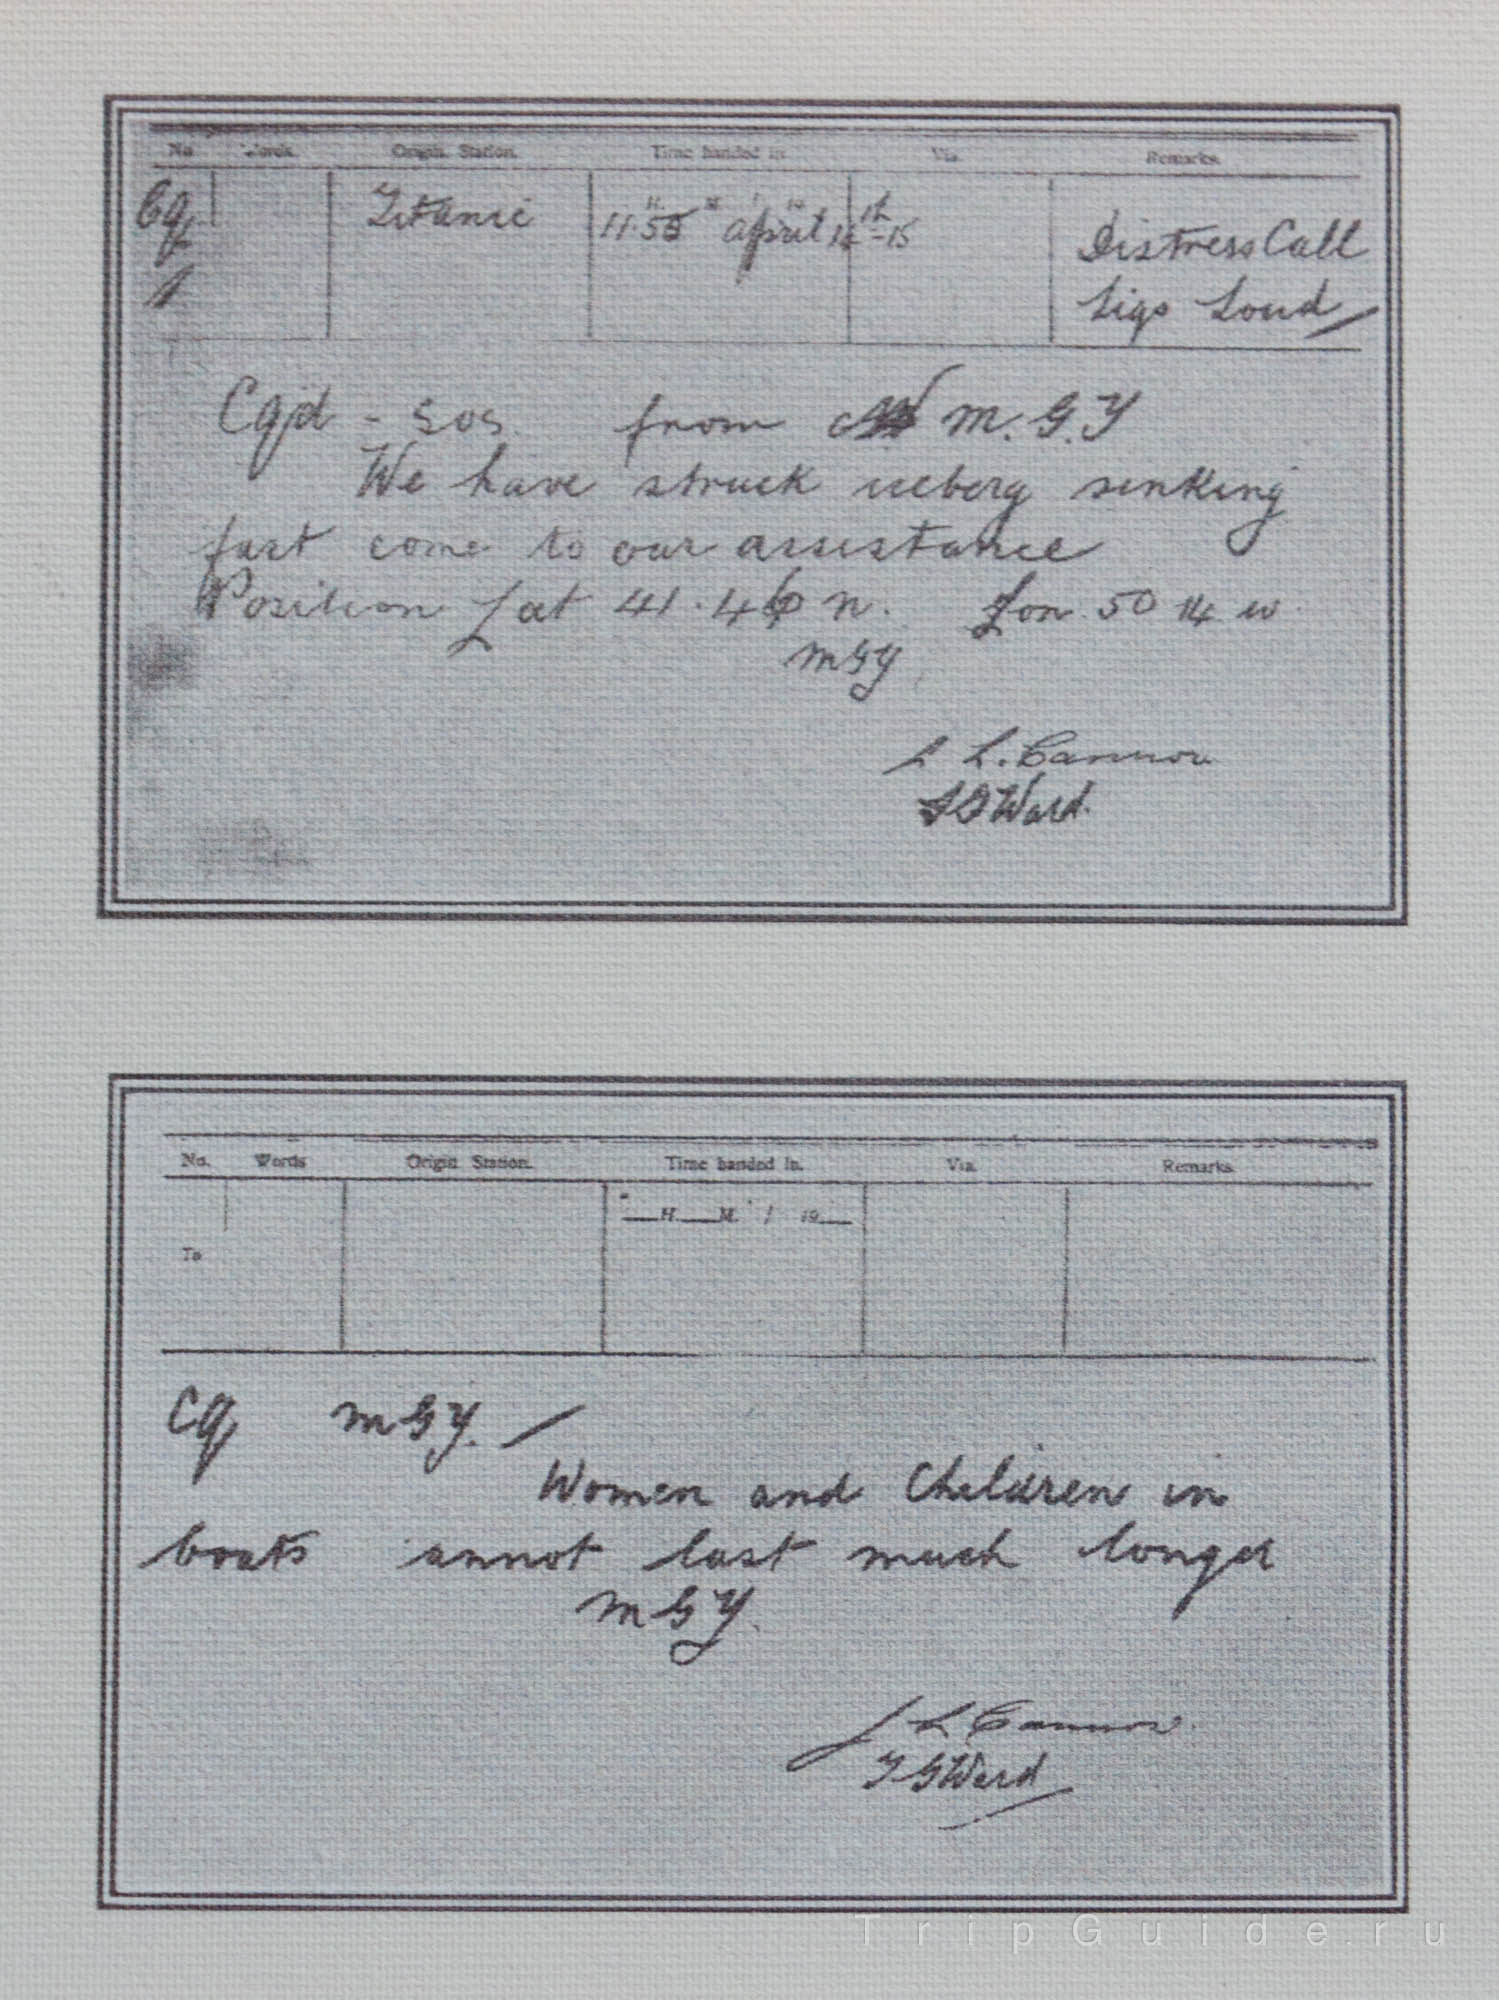 No. Words. Origin. Station. Time handed in. Via. Remarks.
Cq Titanic 11.55 H M April 14th-15 Distress Call
Sigs Loud
Cqd - SOS. from M.G.Y
We have struck iceberg sinking
fast come to our assistance
Position Lat 41.46 n. Lon. 50 14 w.
MGY
L. Cannon
Ward.
No. Words Origin. Station. Time handed in. Via. Remarks.
H. M. / 19
To
Cq MGY.
Women and Children in
boats annot last much longer
MGY.
L Cannon
GWard
TripGuide.ru